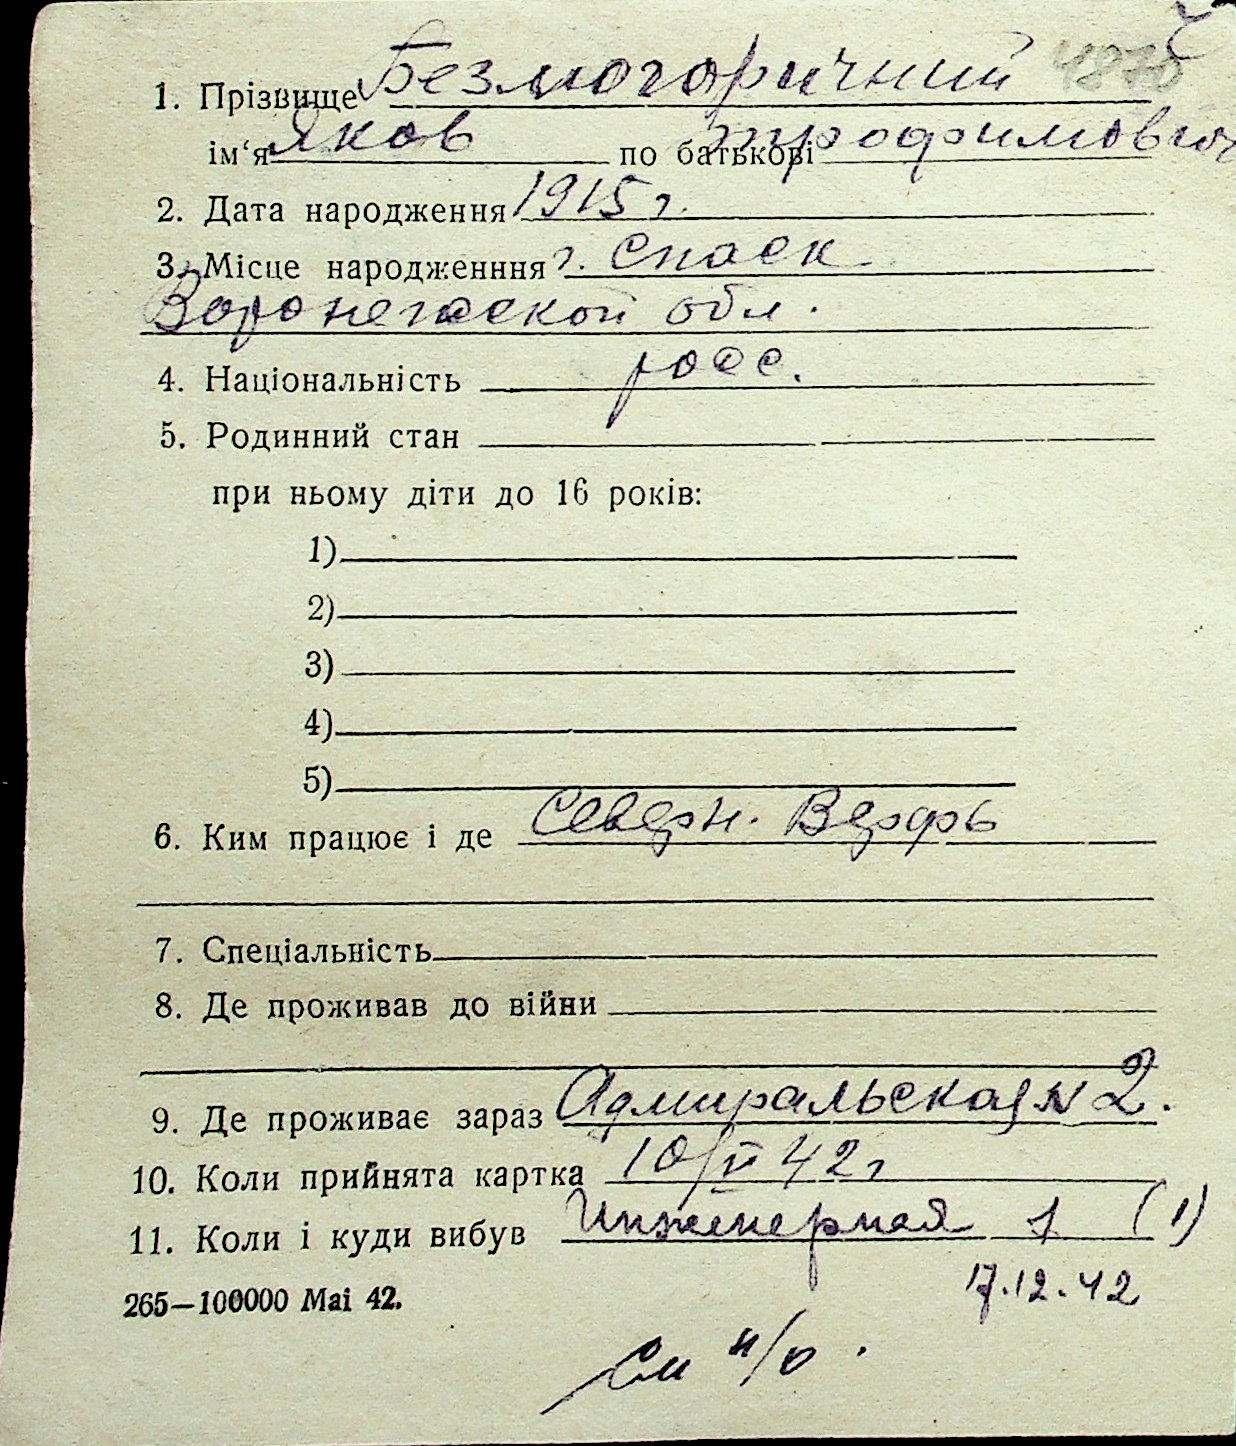 4870
1. Прізвище Безмогоричний
ім‘я Яков по батькові Трофимович
2. Дата народження 1915 г.
3. Місце народженння г. Спасск
Воронежской обл.
4. Національність росс.
5. Родинний стан
при ньому діти до 16 років:
1)
2)
3)
4)
5)
6. Ким працює і де Северн. Верфь
7. Спеціальність
8. Де проживав до війни
9. Де проживає зараз Адмиральская № 2.
10. Коли прийнята картка 10/ 42 г
11. Коли і куди вибув Инженерная 1 (1)
265—100000 Mai 42. 17.12.42
См н/о.